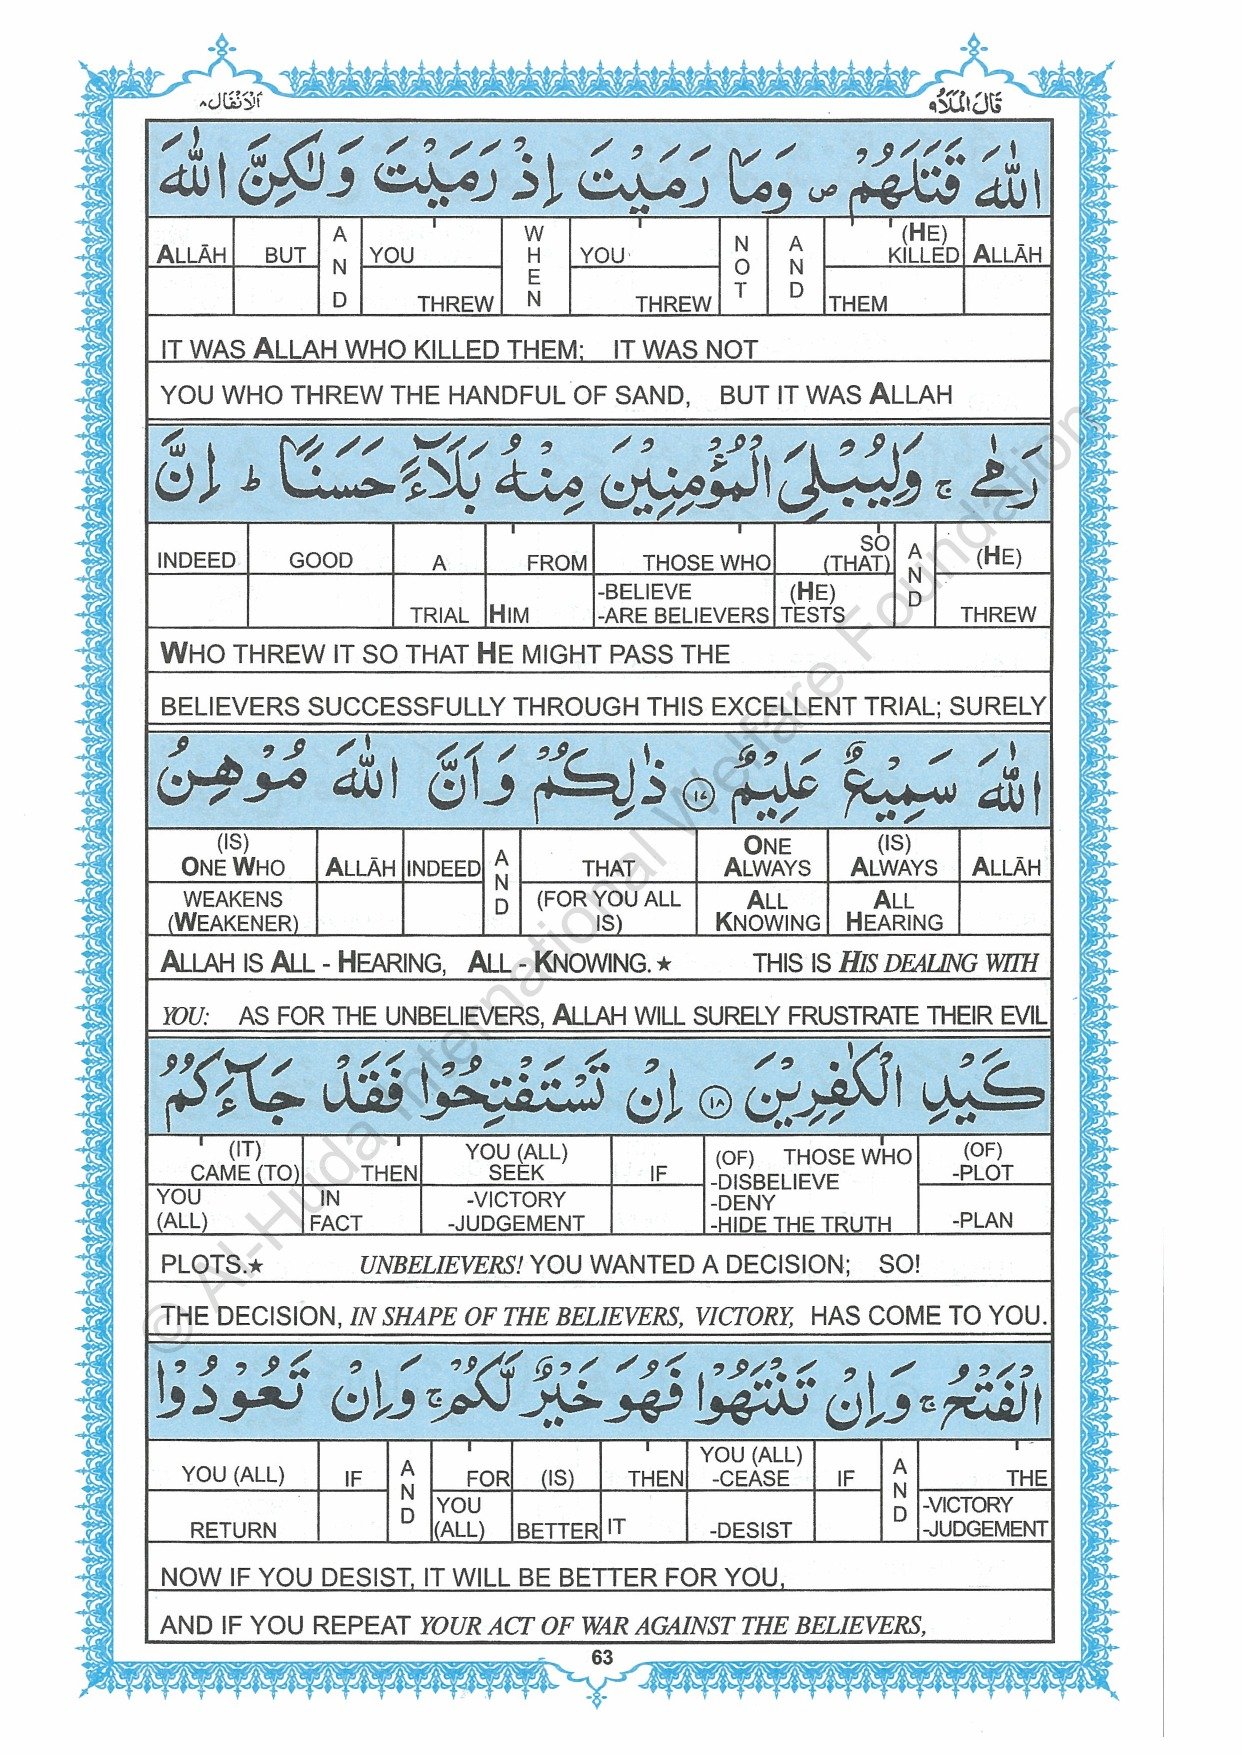 قَالَ الْمَلَاُ ۹
اَلْاَنْفَال ۸
اللّٰهَ قَتَلَهُمْ ۪ وَمَا رَمَيْتَ اِذْ رَمَيْتَ وَلٰكِنَّ اللّٰهَ
ALLĀH BUT AND YOU WHEN YOU NOT AND (HE) KILLED ALLĀH
THREW THREW THEM
IT WAS ALLAH WHO KILLED THEM; IT WAS NOT
YOU WHO THREW THE HANDFUL OF SAND, BUT IT WAS ALLAH
رَمٰى ۚ وَلِيُبْلِيَ الْمُؤْمِنِيْنَ مِنْهُ بَلَآءً حَسَنًا ؕ اِنَّ
INDEED GOOD A FROM THOSE WHO SO (THAT) AND (HE)
TRIAL HIM -BELIEVE -ARE BELIEVERS (HE) TESTS THREW
WHO THREW IT SO THAT HE MIGHT PASS THE
BELIEVERS SUCCESSFULLY THROUGH THIS EXCELLENT TRIAL; SURELY
اللّٰهَ سَمِيْعٌ عَلِيْمٌ ۱۷ ذٰلِكُمْ وَاَنَّ اللّٰهَ مُوْهِنُ
(IS) ONE WHO ALLĀH INDEED AND THAT ONE ALWAYS (IS) ALWAYS ALLĀH
WEAKENS (WEAKENER) (FOR YOU ALL IS) ALL KNOWING ALL HEARING
ALLAH IS ALL - HEARING, ALL - KNOWING.★ THIS IS HIS DEALING WITH
YOU: AS FOR THE UNBELIEVERS, ALLAH WILL SURELY FRUSTRATE THEIR EVIL
كَيْدِ الْكٰفِرِيْنَ ۱۸ اِنْ تَسْتَفْتِحُوْا فَقَدْ جَآءَكُمُ
(IT) CAME (TO) THEN YOU (ALL) SEEK IF (OF) THOSE WHO (OF) -PLOT
YOU (ALL) IN FACT -VICTORY -JUDGEMENT -DISBELIEVE -DENY -HIDE THE TRUTH -PLAN
PLOTS.★ UNBELIEVERS! YOU WANTED A DECISION; SO!
THE DECISION, IN SHAPE OF THE BELIEVERS, VICTORY, HAS COME TO YOU.
الْفَتْحُ ۚ وَاِنْ تَنْتَهُوْا فَهُوَ خَيْرٌ لَّكُمْ ۚ وَاِنْ تَعُوْدُوْا
YOU (ALL) IF AND FOR (IS) THEN YOU (ALL) -CEASE IF AND THE
RETURN YOU (ALL) BETTER IT -DESIST -VICTORY -JUDGEMENT
NOW IF YOU DESIST, IT WILL BE BETTER FOR YOU,
AND IF YOU REPEAT YOUR ACT OF WAR AGAINST THE BELIEVERS,
63
© Al-Huda International Welfare Foundation